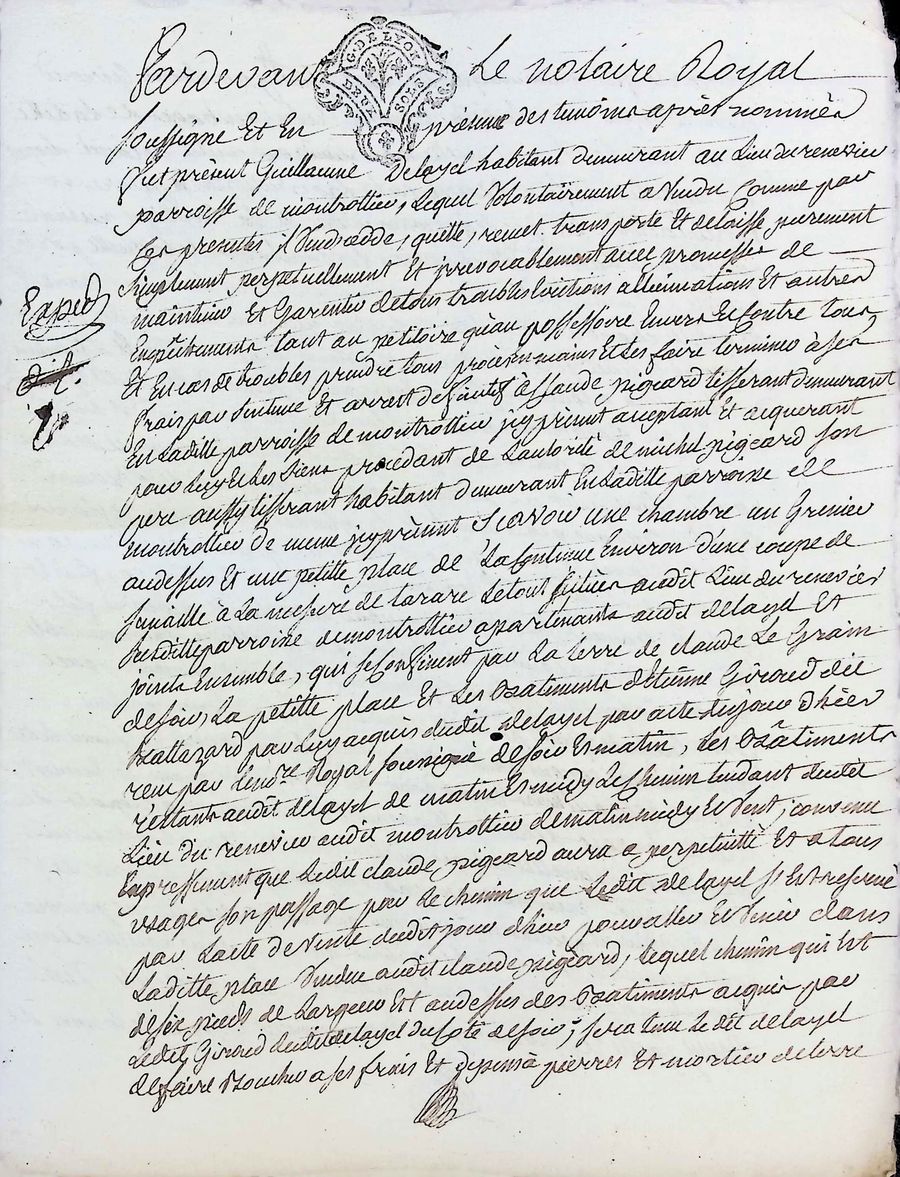 G. DE LYON
DEUX SOLS
Pardevant Le notaire Royal
soussigné Et En présence des temoins après nommés
fut présent Guillaume Delayel habitant demeurant au Lieu du renevier
parroisse de montrottier, Lequel Volontairement a Vendu Comme par
Les presentes il Vend, cedde, quitte, remet, transporte Et delaisse purement
simplement perpetuellement Et irrevocablement avec promesses de
maintenir Et Garentir de tous troubles Evictions alliennations Et autres
Empêchements tant au petitoire qu'au possessoire Envers Et Contre tous
Et En cas de troubles prendre tous procès En mains Et Les faire terminer à ses
frais par sentence Et arrest definitif à Claude pigeard tisserant demeurant
En Laditte parroisse de montrottier icy présent acceptant Et acquerant
pour Luy Et Les siens procedant de L'autorité de michel pigeard son
pere aussy tisserant habitant demeurant En Laditte parroisse de
montrottier De meme icy présent Scavoir une chambre un Grenier
au dessus Et une petitte place de La Contenue Environ d'une coupe de
semaille à La mesure de tarare Le tout situés audit Lieu du renevier
susditte parroisse de montrottier apartenants audit delayel Et
joints Ensemble, qui se Confinent par La terre de claude Le Grain
de soir, La petitte place Et Les Batiments d'Etienne Giroud dit
Baltazard par Luy acquis dudit delayel par acte du jour d'hier
reçu par Le no.re Royal soussigné de soir Et matin, Les Bâtiments
restants audit delayel de matin Et midy Le Chemin tendant dudit
Lieu du renevier audit montrottier de matin midy Et Vent; convenu
Expressement que Ledit claude pigeard aura a perpetuitté Et a tous
usages son passage par le chemin que Ledit delayel s'est reservé
par L'acte de Vente dudit jour d'hier pour aller Et Venir dans
Laditte place Vendue audit claude pigeard, Lequel chemin qui Est
de six pieds de Largeur Et au dessus des Batiments acquis par
Ledit Giroud dudit delayel du Coté de soir; sera tenu Ledit delayel
de faire Boucher a ses frais Et depens à pierres Et mortier de terre
Exped
dit.